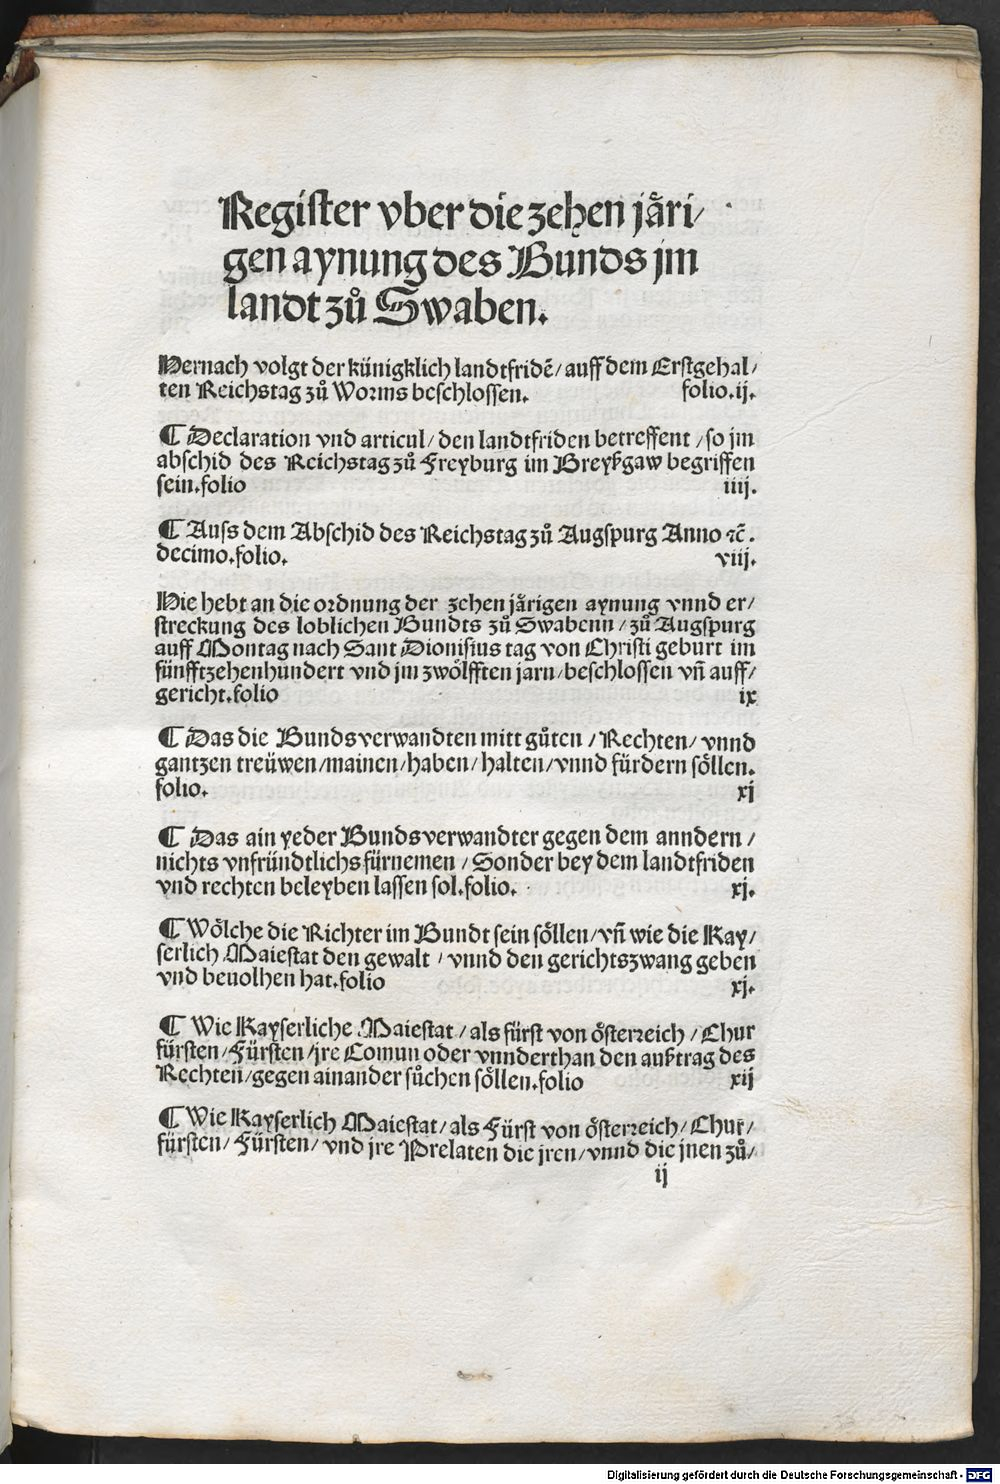 Register vber die zehen järi/
gen aynung des Bunds jm
landt zů Swaben.
Hernach volgt der künigklich landtfridē/ auff dem Erstgehal/
ten Reichstag zů Worms beschlossen. folio.ij.
¶ Declaration vnd articul/ den landtfriden betreffent /so jm
abschid des Reichstag zů Freyburg im Breyßgaw begriffen
sein.folio iiij.
¶ Auss dem Abschid des Reichstag zů Augspurg Anno ⁊c̄.
decimo.folio. viij.
Hie hebt an die ordnung der zehen järigen aynung vnnd er/
streckung des loblichen Bundts zů Swabenn / zů Augspurg
auff Montag nach Sant Dionisius tag von Christi geburt im
fünfftzehenhundert vnd jm zwölfften jarn/ beschlossen vn̄ auff/
gericht.folio ix
¶ Das die Bundsverwandten mitt gůten / Rechten/ vnnd
gantzen treüwen/mainen/haben/ halten/vnnd fürdern söllen.
folio. xj
¶ Das ain yeder Bundsverwandter gegen dem anndern /
nichts vnfründtlichs fürnemen / Sonder bey dem landtfriden
vnd rechten beleyben lassen sol.folio. xj.
¶ Wölche die Richter im Bundt sein söllen/vn̄ wie die Kay/
serlich Maiestat den gewalt / vnnd den gerichtszwang geben
vnd beuolhen hat.folio xj.
¶ Wie Kayserliche Maiestat / als fürst von österreich / Chur
fürsten /Fürsten /jre Comun oder vnnderthan den außtrag des
Rechten/gegen ainander sůchen söllen.folio xij
¶ Wie Kayserlich Maiestat/ als Fürst von österreich/ Chur/
fürsten/ Fürsten/ vnd jre Prelaten die jren/ vnnd die jnen zů/
ij
Digitalisierung gefördert durch die Deutsche Forschungsgemeinschaft - DFG